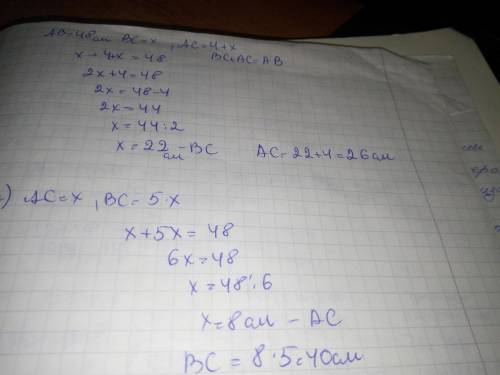 AB=48см BC=x, AC=4+x
x+4+x=48 BC+AC=AB
2x+4=48
2x=48-4
2x=44
x=44:2
x=22см-BC AC=22+4=26см
) AC=x, BC=5·x
x+5x=48
6x=48
x=48:6
x=8см-AC
BC=8·5=40см